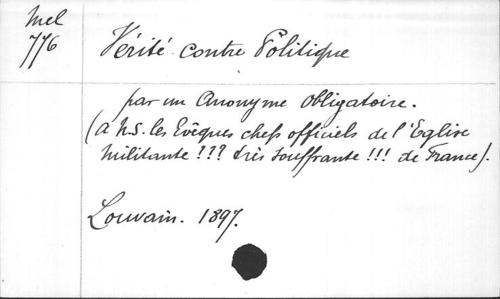 Mel
776
Vérité contre Politique
par un Anonyme obligatoire.
(à N.S. les Evêques chefs officiels de l'Eglise
militante ??? très souffrante !!! de France).
Louvain. 1897.